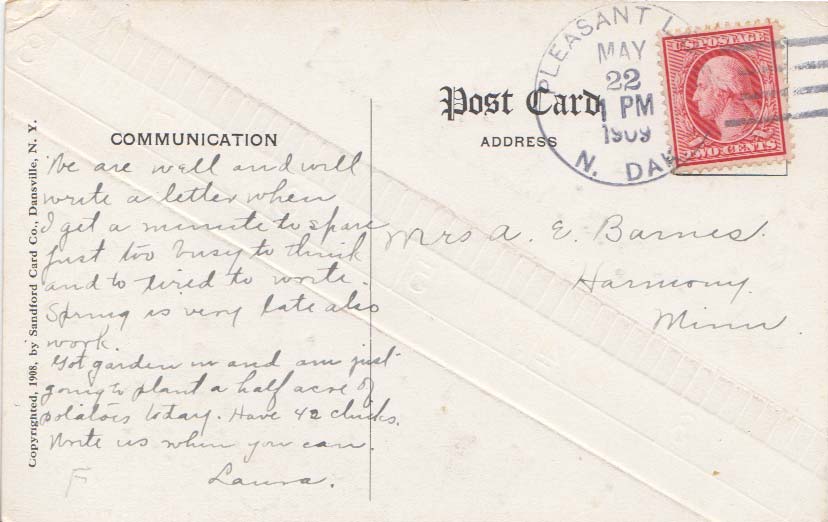 PLEASANT L
MAY
22
1 PM
1909
N. DAK
U.S. POSTAGE
TWO CENTS
Post Card
COMMUNICATION
ADDRESS
We are well and will
write a letter when
I get a minute to spare
just too busy to think
and to tired to write.
Spring is very late also
work.
Got garden in and am just
going to plant a half acre of
potatoes today. Have 42 chicks.
Write us when you can.
Laura.
F
Mrs A. E. Barnes.
Harmony.
Minn.
Copyrighted, 1908, by Sandford Card Co., Dansville, N. Y.